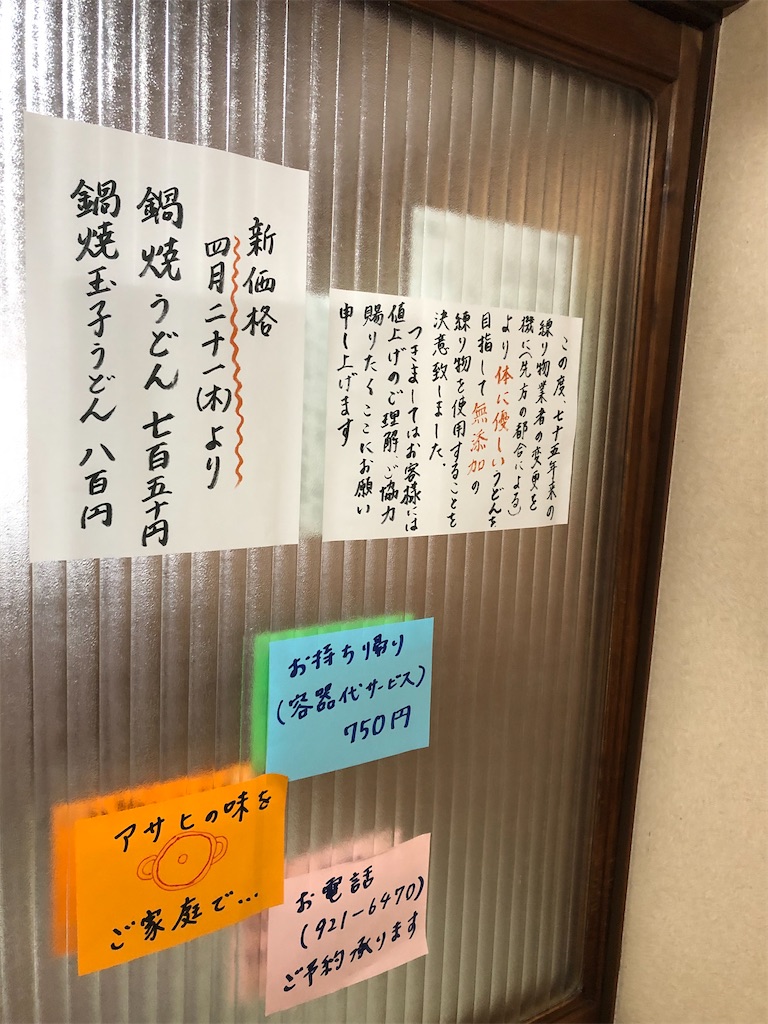 新価格
四月二十一(木)より
鍋焼うどん 七百五十円
鍋焼玉子うどん 八百円
この度、七十五年来の
練り物業者の変更を
機に(先方の都合による)
より体に優しいうどんを
目指して無添加の
練り物を使用することを
決意致しました.
つきましてはお客様には
値上げのご理解、ご協力
賜りたくここにお願い
申し上げます
お持ち帰り
(容器代サービス)
750円
アサヒの味を
ご家庭で...
お電話
(921-6470)
ご予約承ります